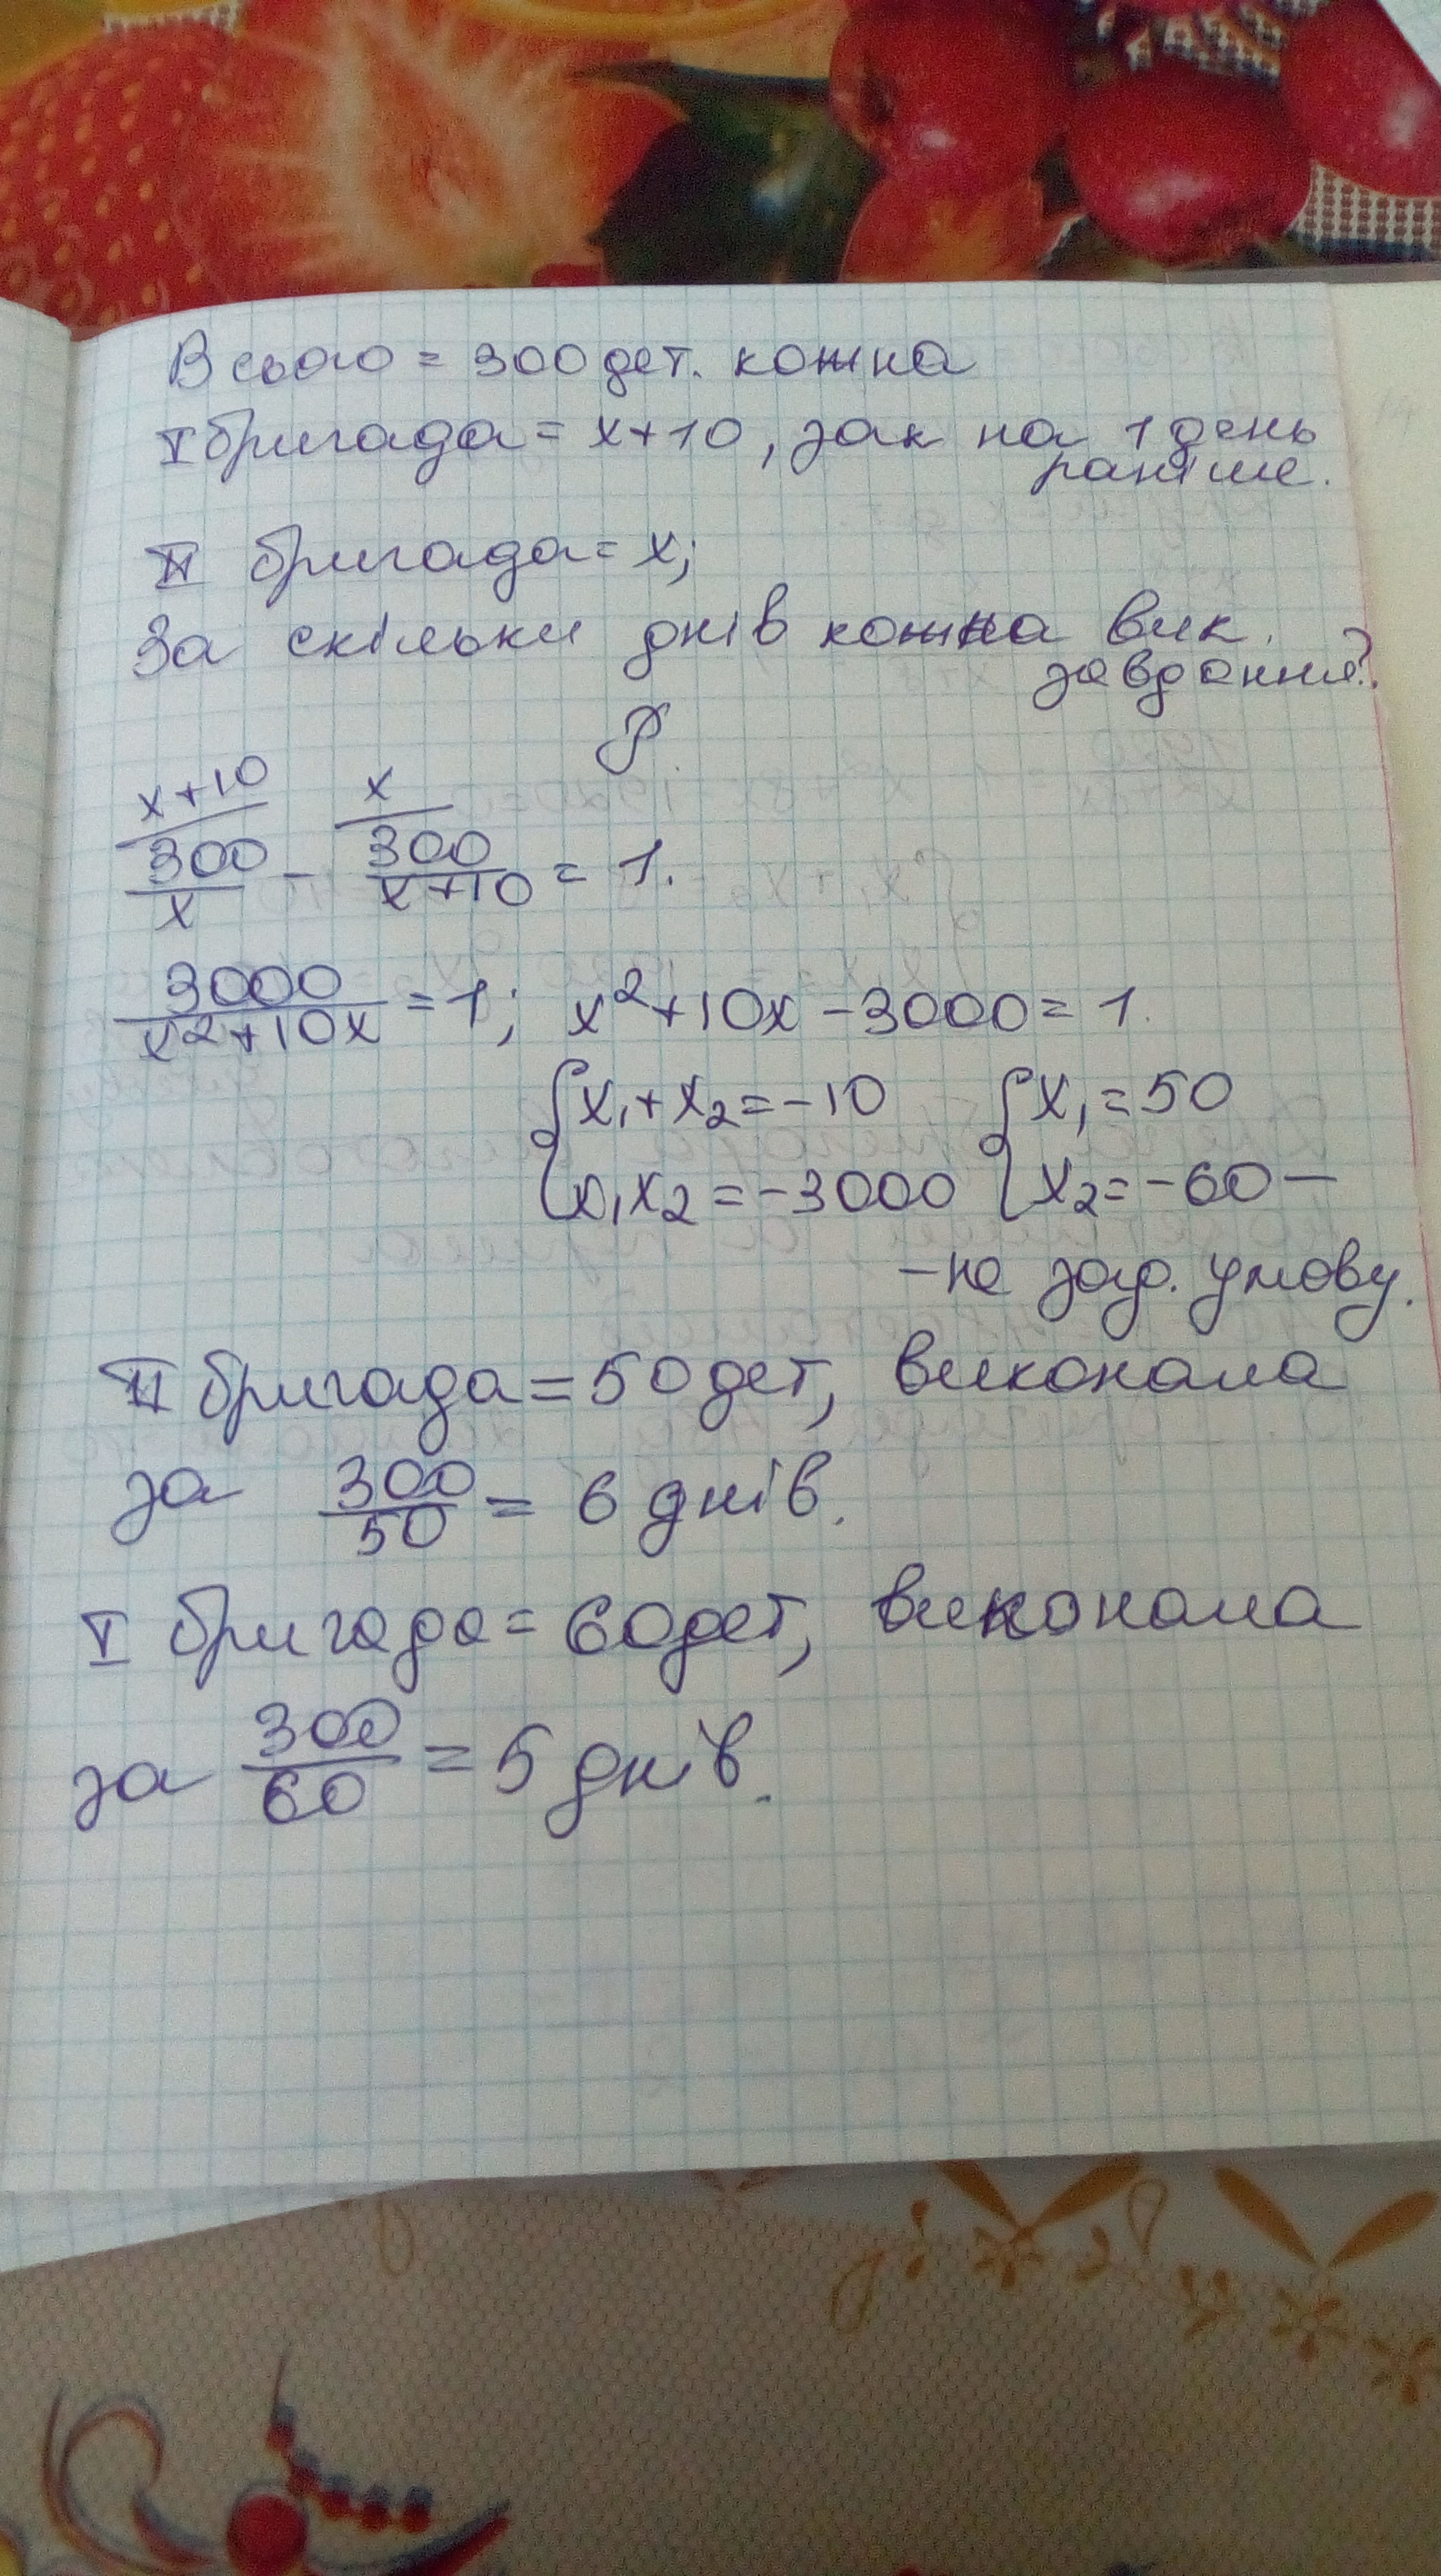 Всього = 300 дет. кожна
I бригада = x+10, зак на 1 день
раніше.
II бригада = x;
За скільки днів кожна вик.
завдання?
Р.
x+10 x
300/x - 300/x+10 = 1.
3000/x²+10x = 1; x²+10x-3000=1.
{x₁+x₂=-10 {x₁=50
{x₁x₂=-3000 {x₂=-60-
-не зад. умову.
II бригада=50дет, виконала
за 300/50 = 6 днів.
I бригада=60дет, виконала
за 300/60 = 5 днів.